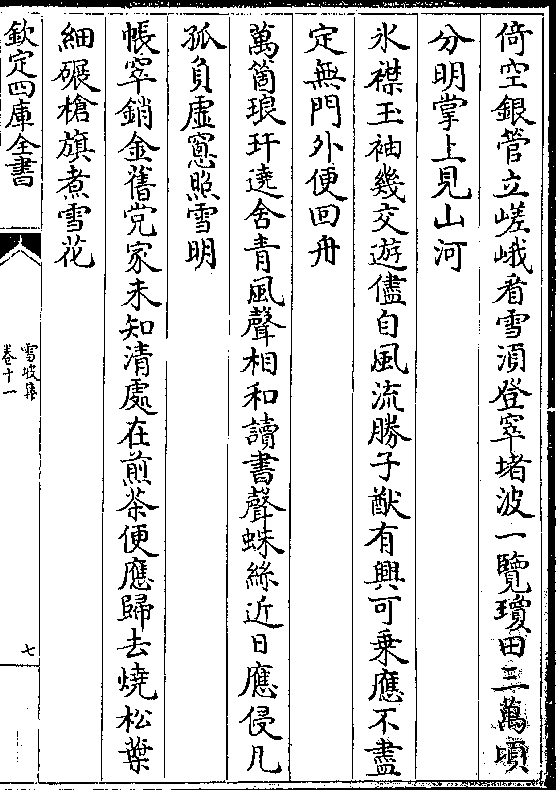 倚空銀菅立嵯峨看雪湏登窣堵波一覽瓊田三萬頃
分明掌上見山河
氷襟玉袖幾交遊儘自風流勝子猷有興可乗應不盡
定無門外便回舟
萬箇琅玕遶舍青風聲相和讀書聲蛛絲近日應侵几
孤負虛窻照雪明
帳窣銷金舊党家未知清處在煎茶便應歸去燒松葉
細碾槍旗煮雪花
欽定四庫全書
雪坡集
卷十一
七